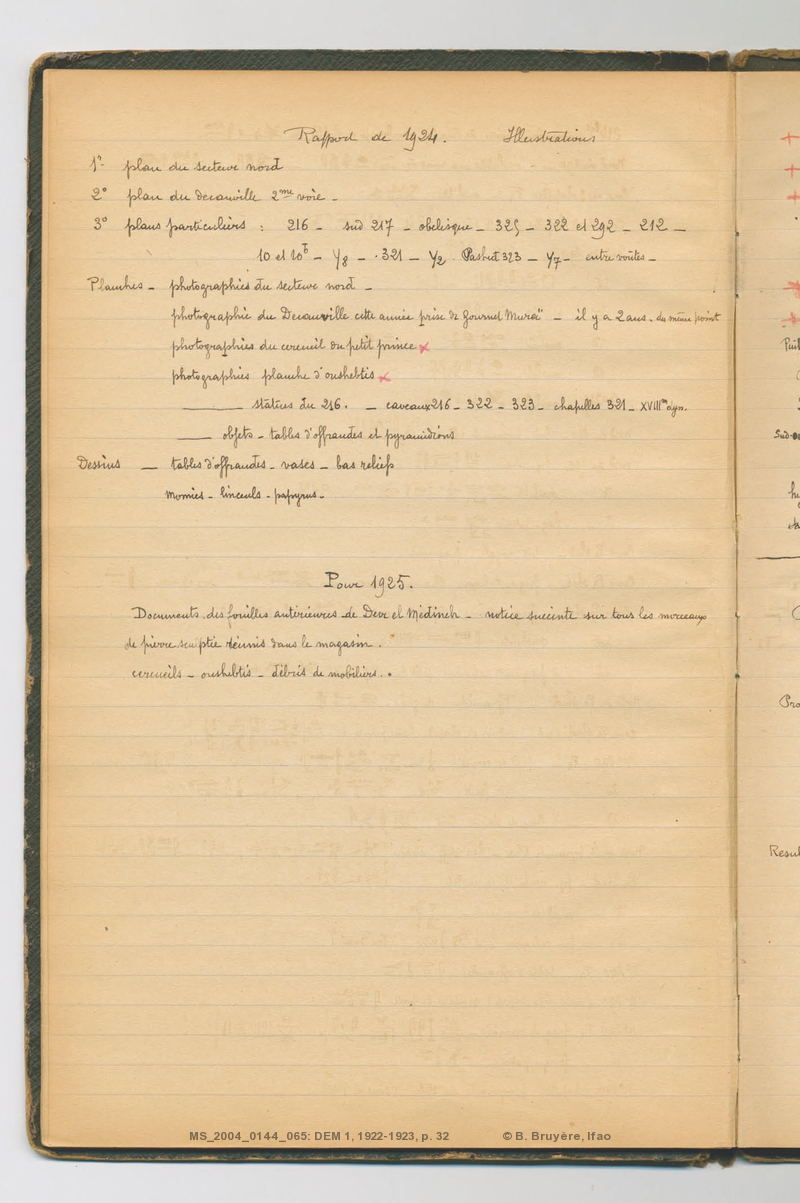 Rapport de 1924. Illustrations
1°- plan du secteur nord
2° plan du decauville 2me voie -
3° plans particuliers : 216 - sud 217 - obelisque - 325 - 322 et 292 - 212 -
10 et 10b - Y8 - 321 - Y2 Pashed 323 - Y7 - entre voûtes -
Planches - photographies du secteur nord -
photographie du Decauville cette année prise de Gournet Muraï - il y a 2 ans. du même point
photographies du cercueil du petit prince x
photographies planche d'oushebtis x
——— statues du 216. - caveaux 216 - 322 - 323 - chapelles 321 - XVIIIme dyn.
——— objets - tables d'offrandes et pyramidions
Dessins — tables d'offrandes - vases - bas reliefs
Momies - linceuls - papyrus -
Pour 1925.
Documents des fouilles antérieures de Deir el Medineh - notice succinte sur tous les morceaux
de pierre sculptée réunis dans le magasin.
cercueils - oushebtis - débris de mobiliers..
+
+
+
Sud-
Pro
Resul
MS_2004_0144_065: DEM 1, 1922-1923, p. 32 © B. Bruyère, Ifao